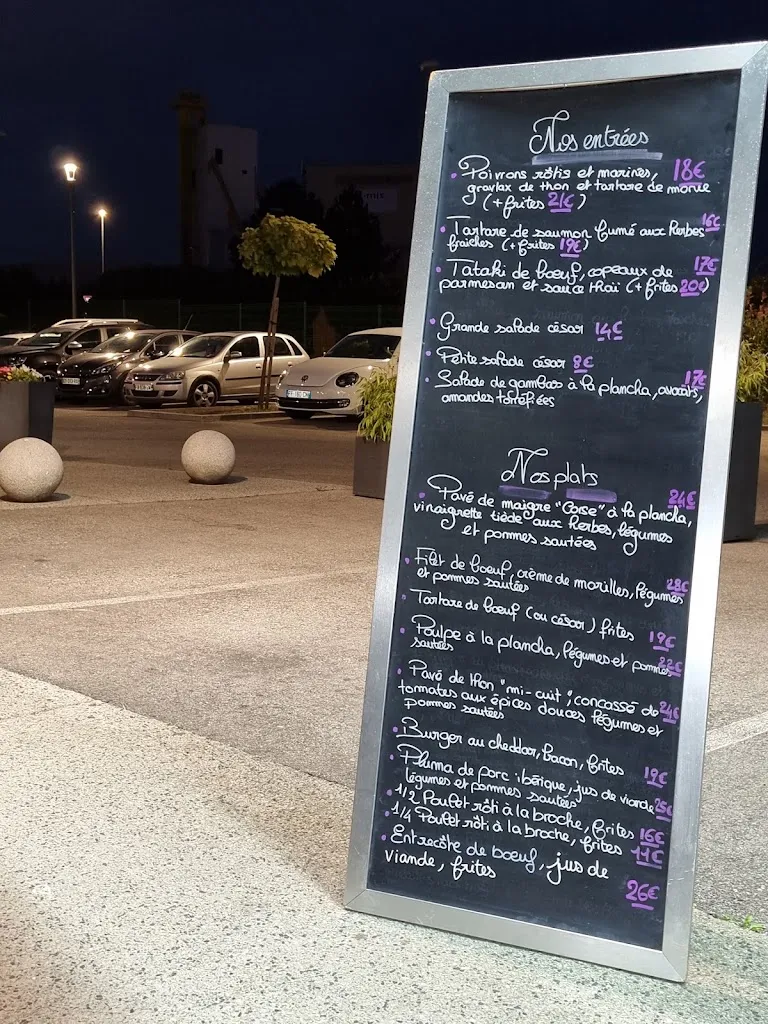 Nos entrées
• Poivrons rôtis et marinés, 18€
gravlax de thon et tartare de morue
(+ frites 21€)
• Tartare de saumon fumé aux herbes 16€
fraîches (+ frites 19€)
• Tataki de bœuf, copeaux de 17€
parmesan et sauce thaï (+ frites 20€)
• Grande salade césar 14€
• Petite salade césar 8€
• Salade de gambas à la plancha, avocats, 17€
amandes torréfiées
Nos plats
• Pavé de maigre "Corse" à la plancha, 24€
vinaigrette tiède aux herbes, légumes
et pommes sautées
• Filet de boeuf, crème de morilles, légumes 28€
et pommes sautées
• Tartare de boeuf (ou césar) frites 19€
• Poulpe à la plancha, légumes et pommes 22€
sautées
• Pavé de thon "mi-cuit", concassé de 24€
tomates aux épices douces légumes et
pommes sautées
• Burger au cheddar, bacon, frites 19€
• Pluma de porc ibérique, jus de viande 25€
légumes et pommes sautées
• 1/2 Poulet rôti à la broche, frites 16€
• 1/4 Poulet rôti à la broche, frites 11€
• Entrecôte de boeuf, jus de
viande, frites 26€